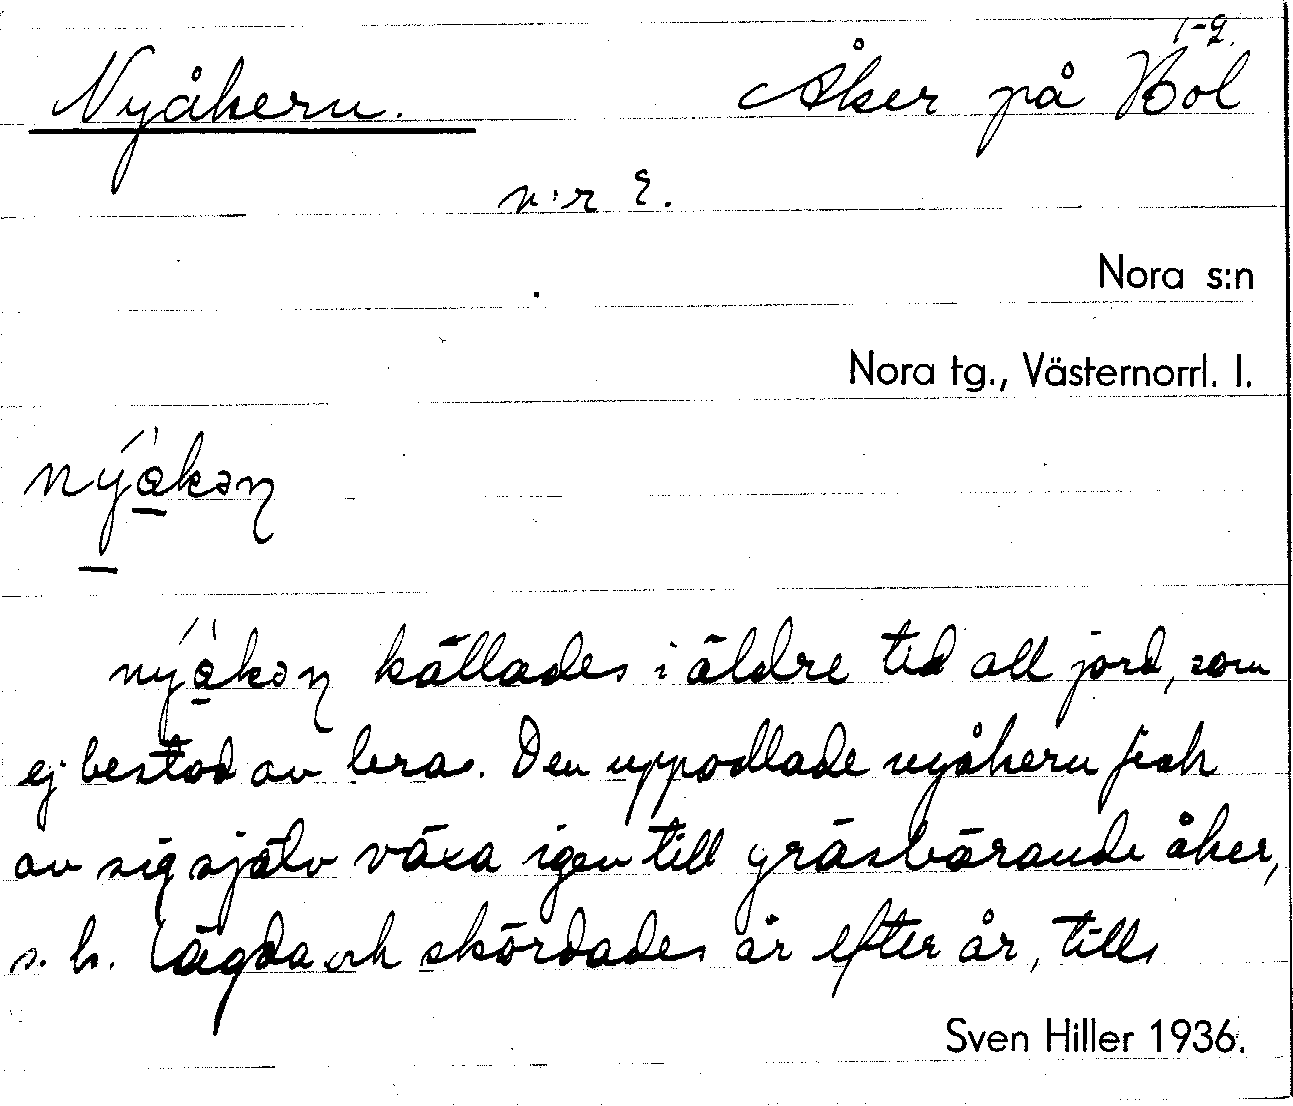 1-2.
Nyåkern. Åker på Böl
n:r 2.
Nora s:n
Nora tg., Västernorrl. l.
nýåkən
nýåkən kallades i äldre tid all jord, som
ej bestod av lera. Den uppodlade nyåkern fick
av sig själv växa igen till gräsbärande åker,
s. k. lägda och skördades år efter år, tills
Sven Hiller 1936.